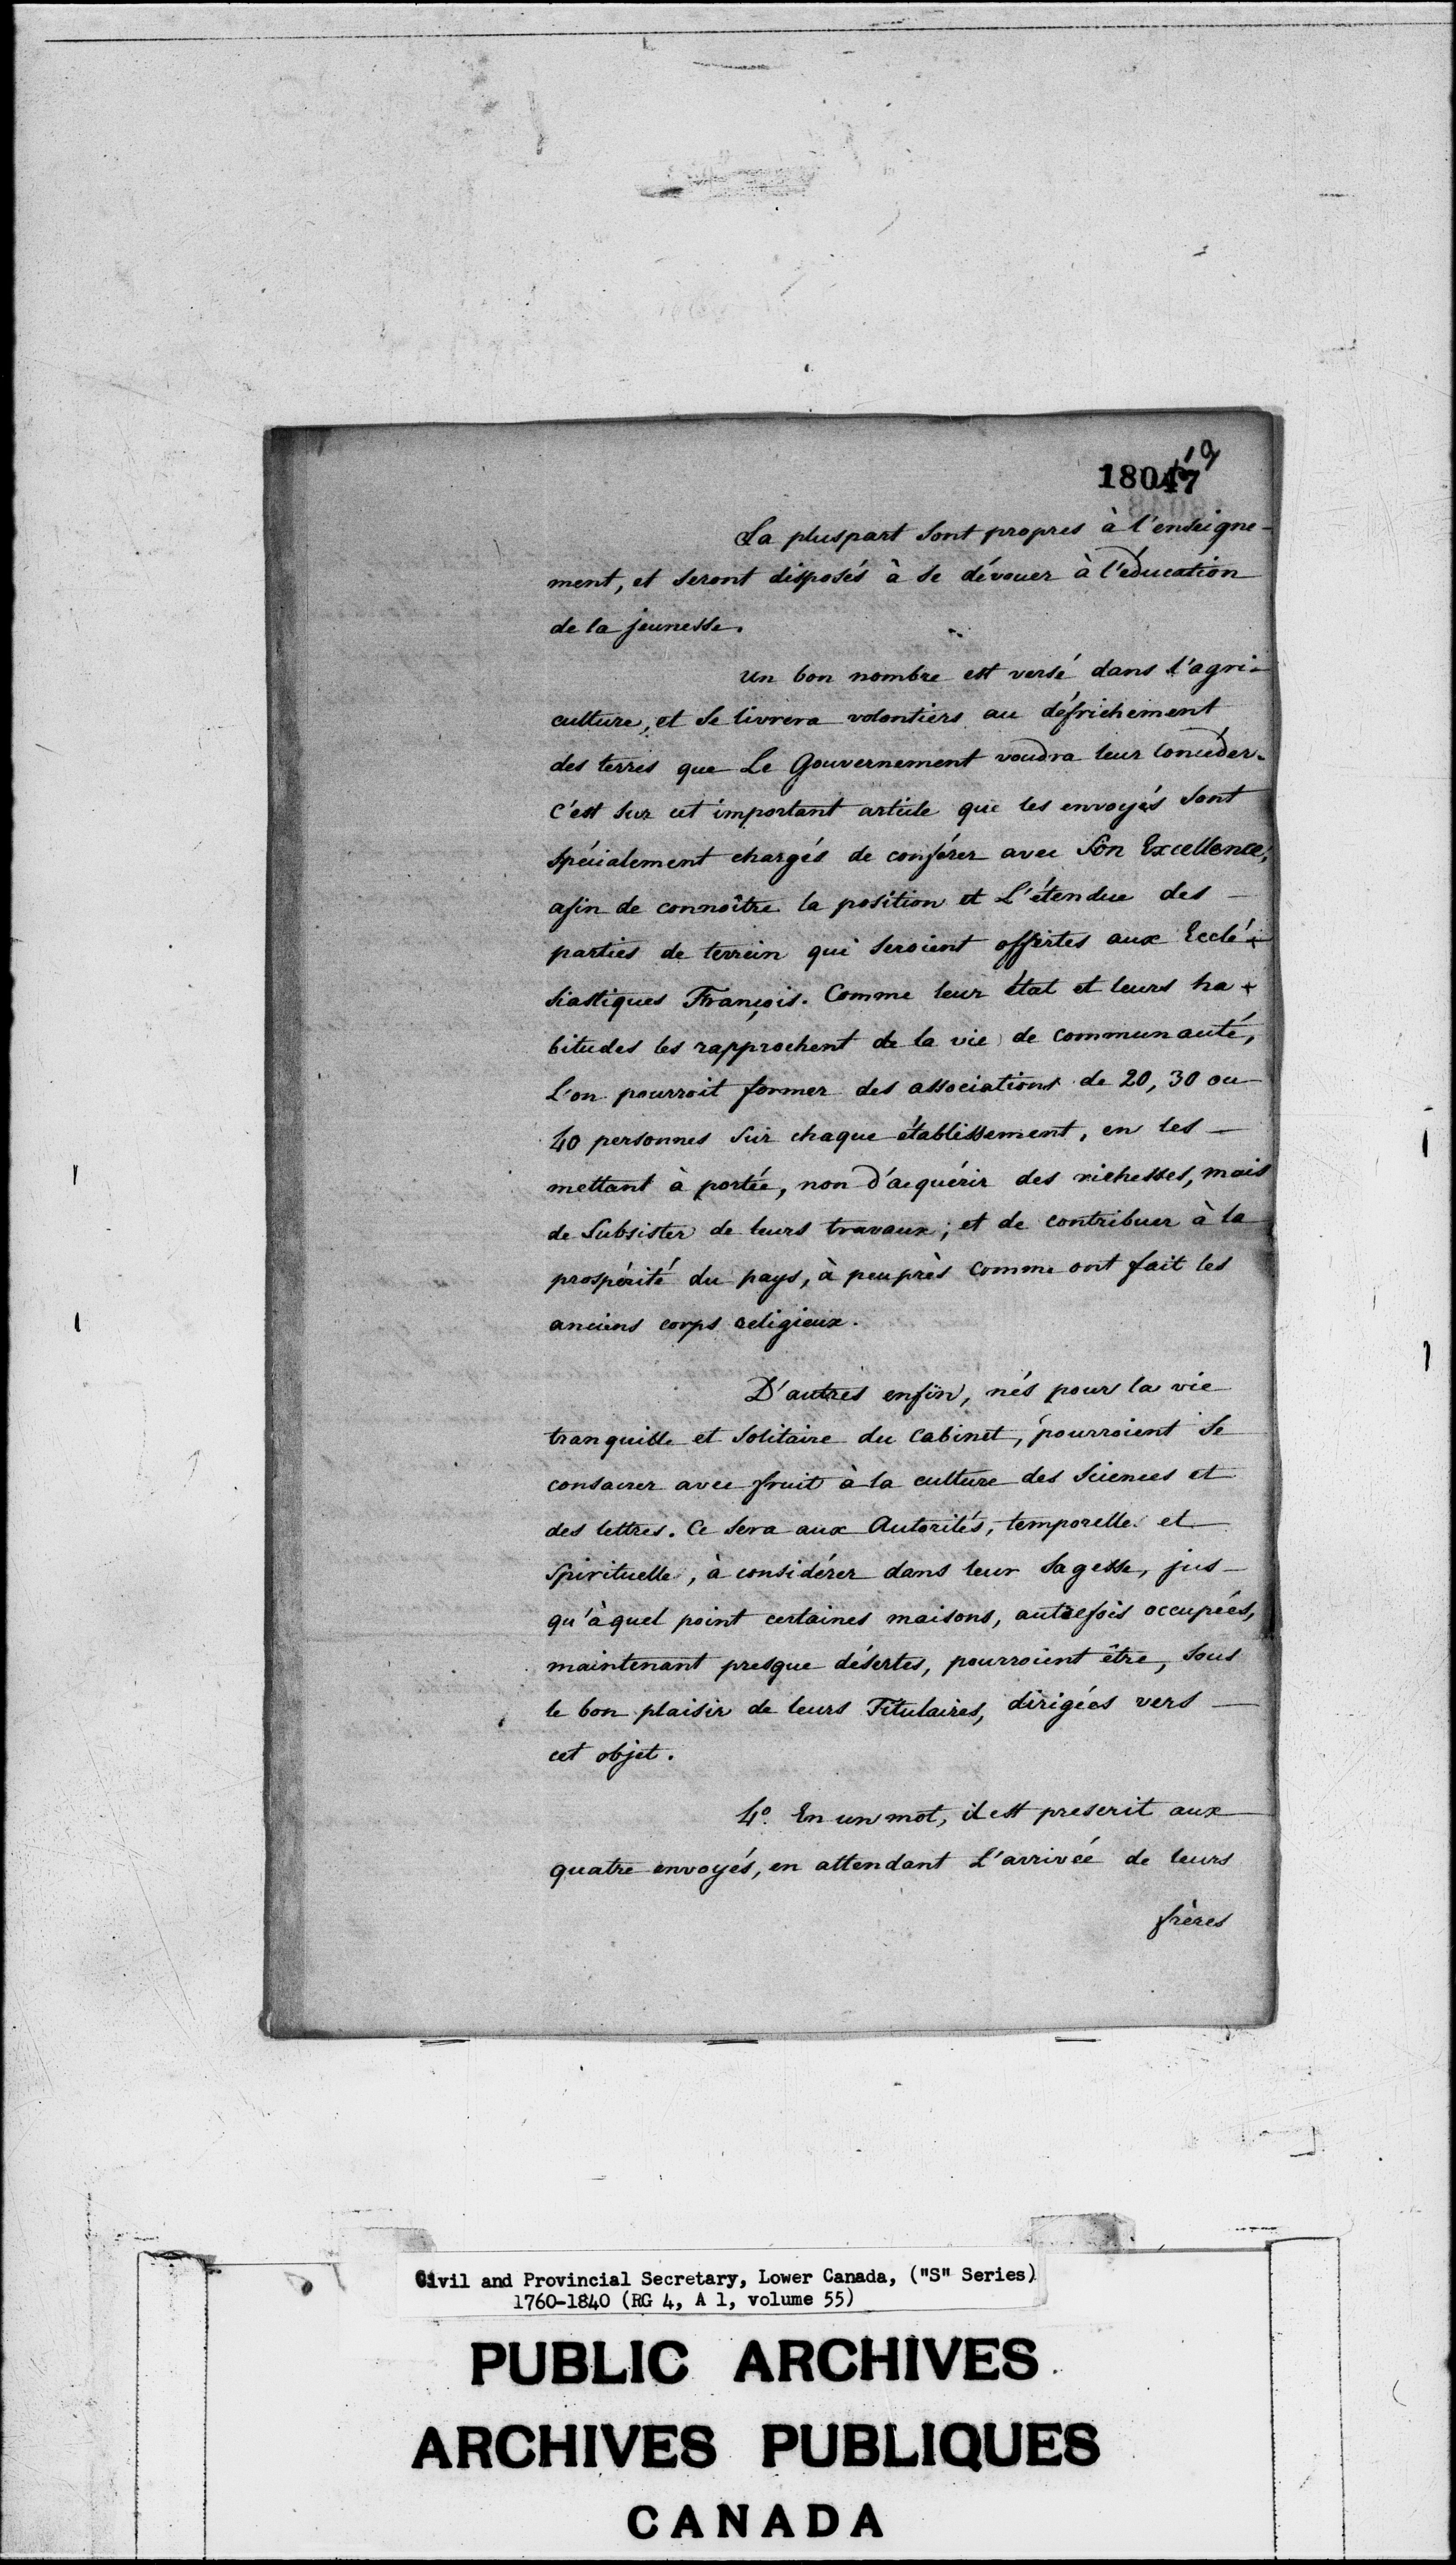 19
18047
La pluspart sont propres à l'enseigne-
ment, et seront disposés à se dévouer à l'éducation
de la jeunesse.
un bon nombre est versé dans l'agri-
culture, et se livrera volontiers au défrichement
des terres que Le Gouvernement voudra leur concéder.
c'est sur cet important article que les envoyés sont
spécialement chargés de conférer avec Son Excellence,
afin de connoître la position et L'étendue des -
parties de terrein qui seroient offertes aux Ecclé-
siastiques François. Comme leur état et leurs ha-
bitudes les rapprochent de la vie de communauté,
L'on pourroit former des associations de 20, 30 ou
40 personnes sur chaque établissement, en les -
mettant à portée, non d'acquérir des richesses, mais
de subsister de leurs travaux; et de contribuer à la
prospérité du pays, à peuprès comme ont fait les
anciens corps religieux.
D'autres enfin, nés pour la vie
tranquille et solitaire du cabinet, pourroient se
consacrer avec fruit à la culture des sciences et
des lettres. Ce sera aux Autorités, temporelle et
spirituelle, à considérer dans leur sagesse, jus-
qu'à quel point certaines maisons, autrefois occupées,
maintenant presque désertes, pourroient être, sous
le bon plaisir de leurs Titulaires, dirigées vers -
cet objet.
4º. En un mot, il est prescrit aux
quatre envoyés, en attendant L'arrivée de leurs
frères
Civil and Provincial Secretary, Lower Canada, ("S" Series)
1760-1840 (RG 4, A 1, volume 55)
PUBLIC ARCHIVES
ARCHIVES PUBLIQUES
CANADA